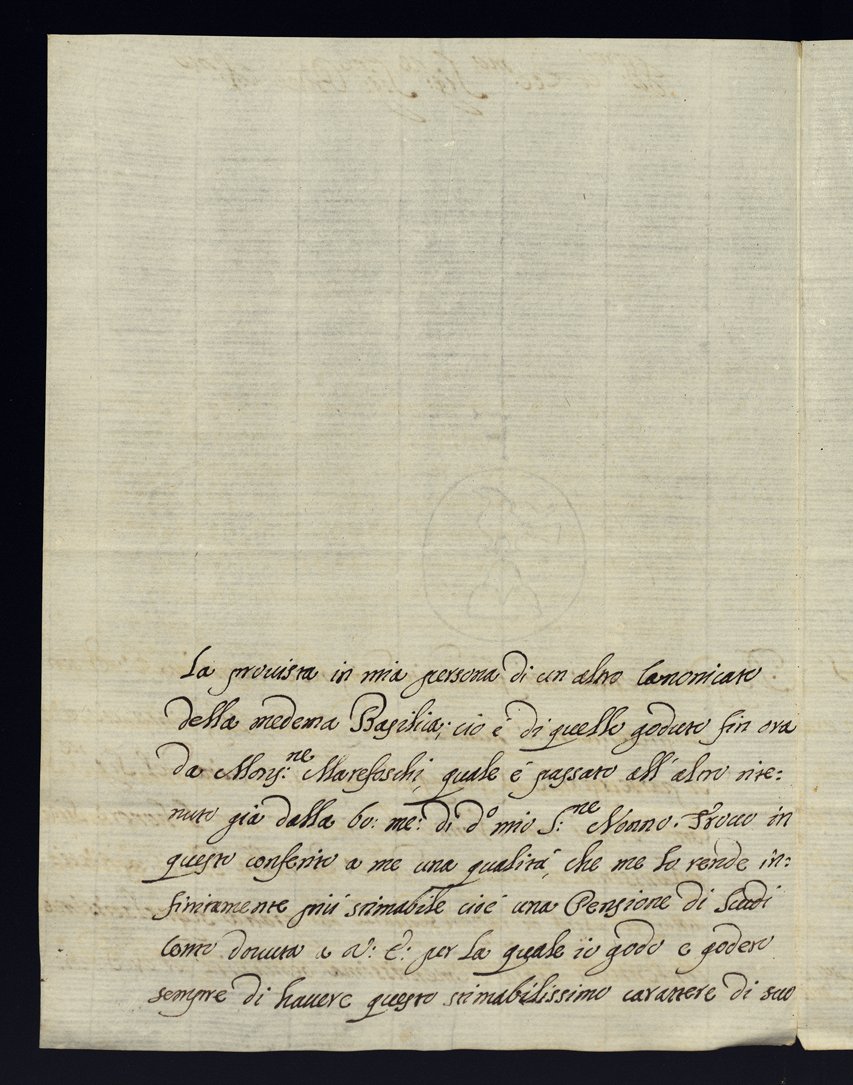 La provista in mia persona di un altro Canonicato
della medema Basilica; cio è di quello goduto fin ora
da Mons:ne Marefoschi, quale è passato all'altro rite:
nuto già dalla bo: me: di do mio S:ne Nonno. Trovo in
questo conferito a me una qualità, che me lo rende in:
finitamente più stimabile cioè una Pensione di Scudi
Cento dovuta a V: E: per la quale io godo e goderò
sempre di havere questo stimabilissimo carattere di suo